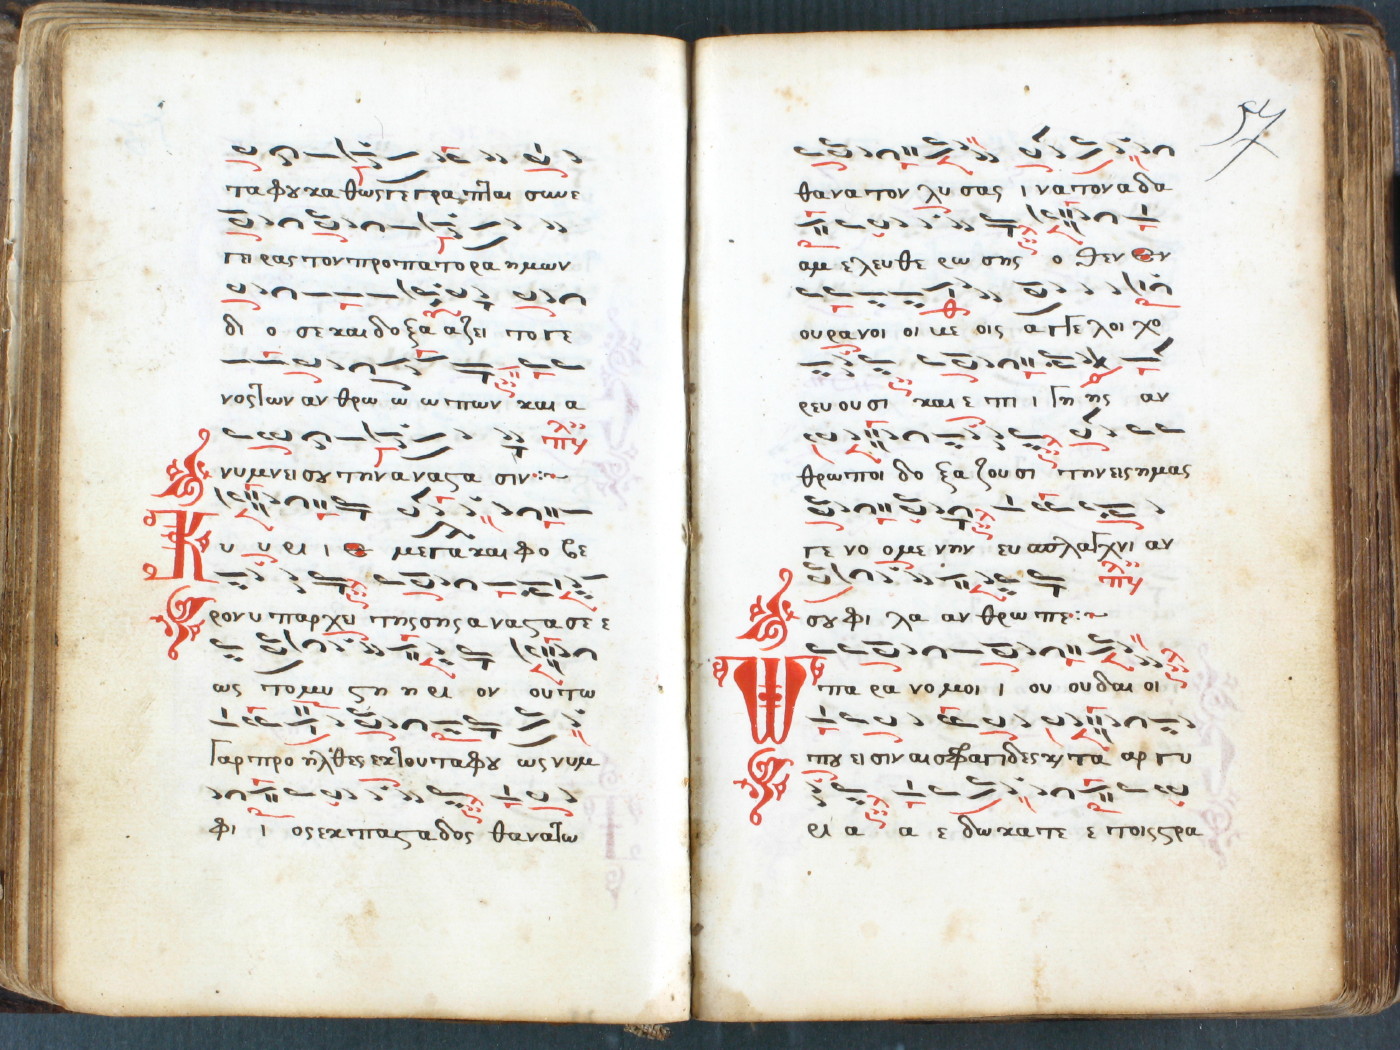 τα φȣ κα θως γε γρα πται συνε
γει ρας τον προ πα το ρα ημων
δι ο σε και δο ξα α ζει το γε
νος των αν θρω ω ω πων και α
νυμνει σȣ την α νας α σιν
Κυ υ ρι ι ε με γα και φο βε
ρον υ παρ χει της σης α να στα σε ε
ως το μυ στη η ρι ον ου τω
γαρ προ ηλθες εκ του τα φȣ ως νυμ
φι ι ος εκ πα στα δος θανατω
57
θα να τον λυ σας ι να τον α δα
αμ ε λευ θε ρω σης ο θεν εν
ου ρα νοι οι με οις α γγε λοι χο
ρευ ου σι και ε πι ι γη ης αν
θρω ποι δο ξα ζου σι την εις ημας
γε νο ο με νην ευ σπλα γχνι αν
σȣ φι λα αν θρω πε
Ω πα ρα νο μοι ι ου ου δαι οι
πȣ ει σιν αι σφρα γι δες κ τα αρ γυ
ρι α α ε δω κα τε ε τοις στρα